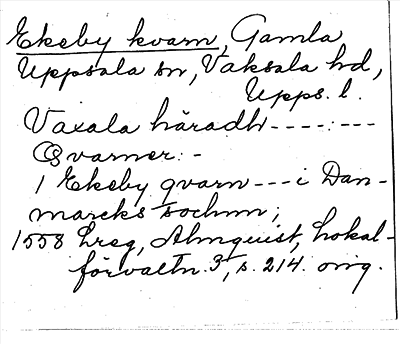 Ekeby kvarn, Gamla
Uppsala sn, Vaksala hd,
Upps. l.
Vaxala häradh ----:---
Qvarner: -
1 Ekeby qvarn --- i Dan-
marcks sochnn;
1558 hreg, Almquist, Lokal-
förvaltn. 3, s. 214. orig.